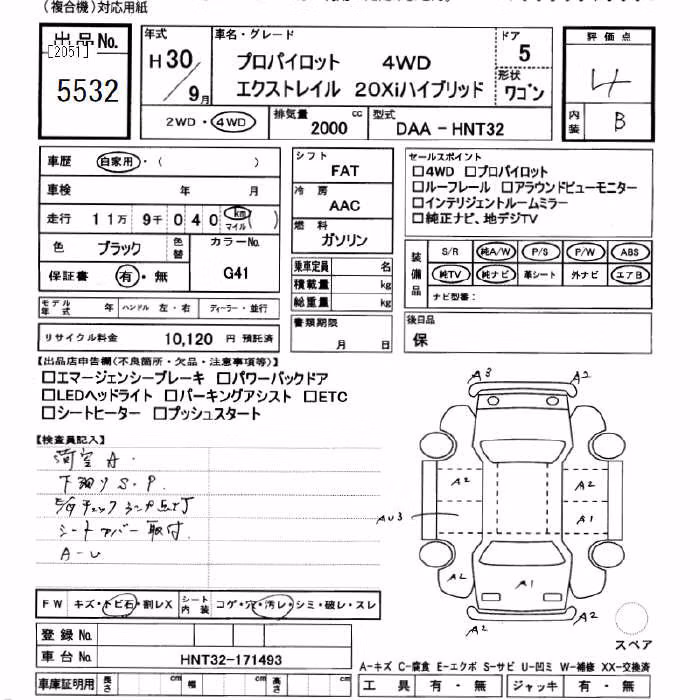 （複合機）対応用紙
出品No.
[2051]
5532
年式
H30／9月
車名・グレード
プロパイロット 4WD
エクストレイル 20Xiハイブリッド
ドア
5
形状
ワゴン
評価点
4
内装
B
2WD・4WD
排気量
2000 cc
型式
DAA－HNT32
車歴 自家用・（ ）
車検 年 月
走行 11万 9千 040 km マイル （ ）
色 ブラック 色替
カラーNo.
G41
保証書 有・無
シフト
FAT
冷房
AAC
燃料
ガソリン
乗車定員 名
積載量 kg
総重量 kg
セールスポイント
□4WD □プロパイロット
□ルーフレール □アラウンドビューモニター
□インテリジェントルームミラー
□純正ナビ、地デジTV
装備品
S/R 純A/W P/S P/W ABS
純TV 純ナビ 革シート 外ナビ エアB
ナビ型番：
モデル年式 年 ハンドル 左・右 ディーラー・並行
リサイクル料金 10,120 円 預託済
書類期限
月 日
後日品
保
【出品店申告欄（不良箇所・欠品・注意事項等）】
□エマージェンシーブレーキ □パワーバックドア
□LEDヘッドライト □パーキングアシスト □ETC
□シートヒーター □プッシュスタート
【検査員記入】
荷室 A.
下廻り S.P.
チェックランプ点灯
シートカバー取付.
A-U
A3 A2
A2 A2
AU3 A1
A2 A1
A2 A2
スペア
FW キズ・トビ石・割レX シート内装 コゲ・穴・汚レ・シミ・破レ・スレ
登録No.
車台No. HNT32-171493
車庫証明用 長さ cm 幅 cm 高さ cm
A-キズ C-腐食 E-エクボ S-サビ U-凹ミ W-補修 XX-交換済
工具 有・無 ジャッキ 有・無